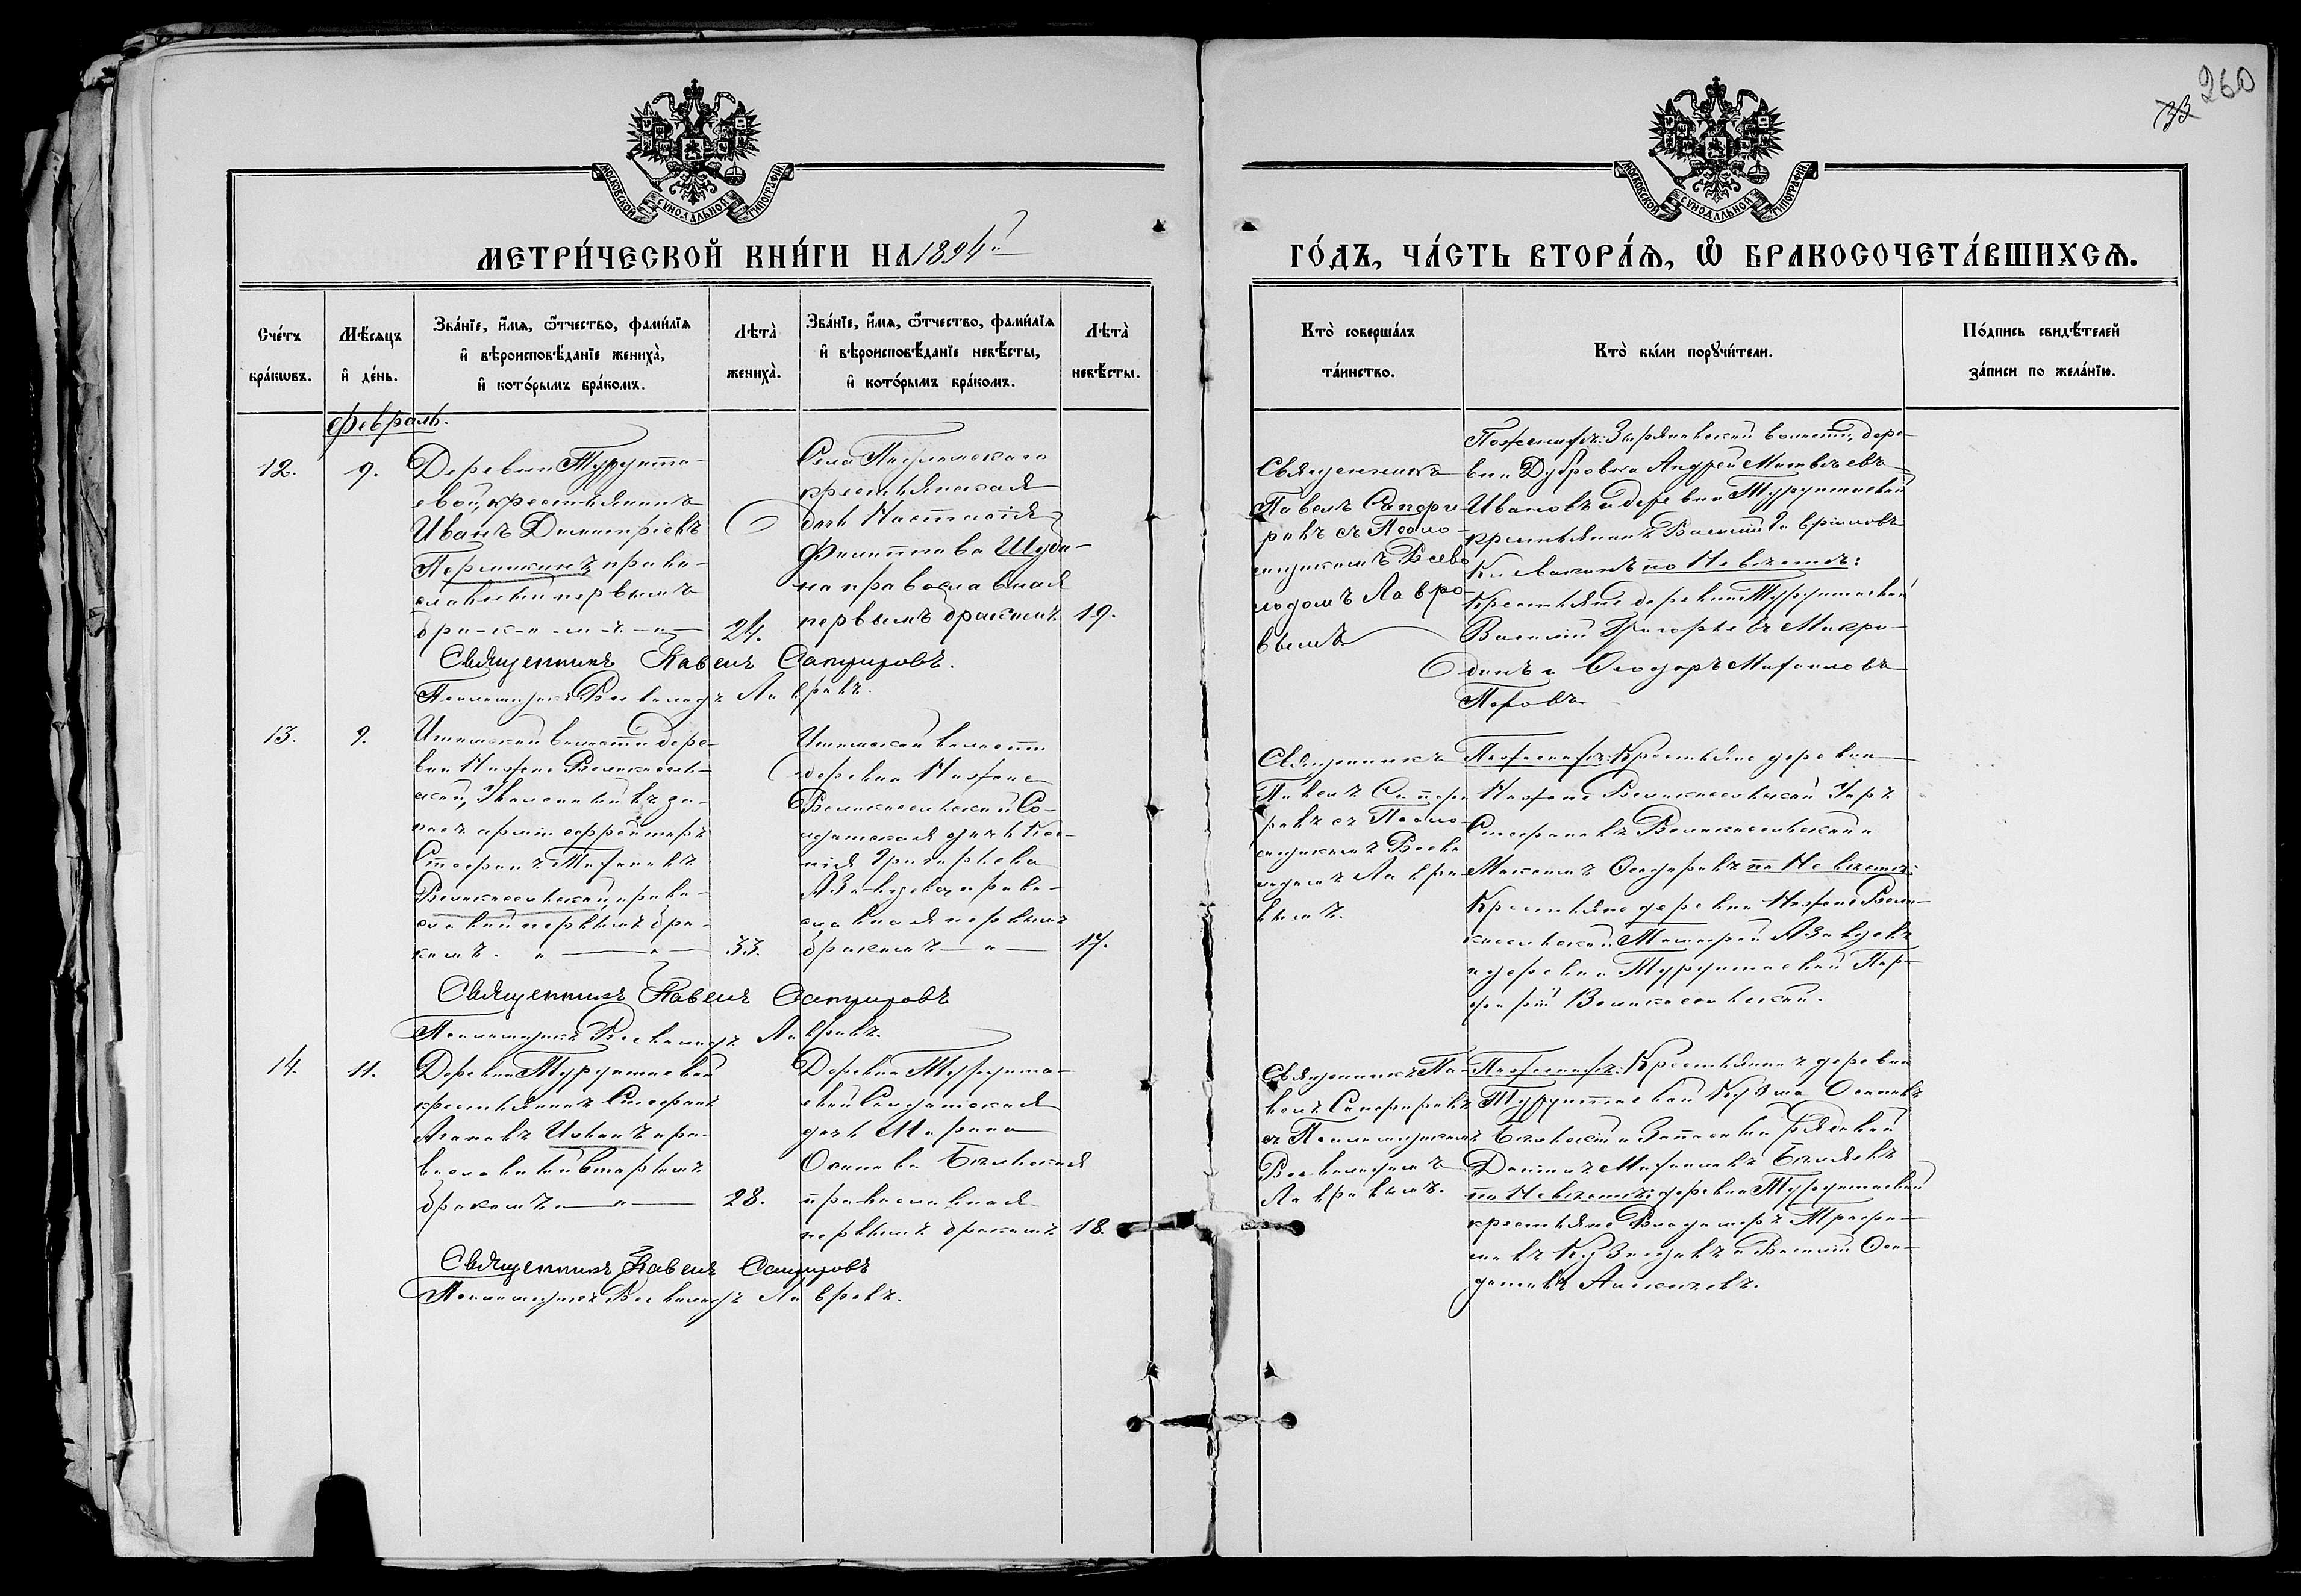 260
33
МОСКОВСКОЙ СѴНОДАЛЬНОЙ ТИПОГРАФІИ
МОСКОВСКОЙ СѴНОДАЛЬНОЙ ТИПОГРАФІИ
МЕТРИ́ЧЕСКОЙ КНИ́ГИ НА 1894й
ГО́ДЪ, ЧА́СТЬ ВТОРА́Ѧ, Ѽ БРАКОСОЧЕТА́ВШИХСѦ.
Сче́тъ бра́кѡвъ.
Мѣ́сяцъ и҆ де́нь.
Зва́нїе, и҆́мѧ, ѻ҆́тчество, фами́лїѧ и҆ вѣроисповѣ́данїе жениха̀, и҆ кото́рымъ бра́комъ.
Лѣта̀ жениха̀.
Зва́нїе, и҆́мѧ, ѻ҆́тчество, фами́лїѧ и҆ вѣроисповѣ́данїе невѣ́сты, и҆ кото́рымъ бра́комъ.
Лѣта̀ невѣ́сты.
Кто̀ соверша́лъ та́инство.
Кто̀ бы́ли порꙋчи́тели.
По́дпись свидѣ́телей за́писи по жела́нїю.
Февраль.
12.
9.
Деревни Турунта-
евой, крестьянинъ
Иванъ Димитріевъ
Пермикинъ, право-
славный первымъ
бра-к-о-м-ъ
24.
Села
крестьянская
дочь Настасія
Филиппова Шуби-
на православная
первымъ бракомъ
19.
Священникъ
Павелъ Сапфи-
ровъ съ Псало-
мщикомъ Всево-
лодомъ Лавро-
вымъ
По женихѣ: Зырянской волости, дере-
вни Дубровки Андрей Матвѣевъ
Ивановъ и деревни Турунтаевой
крестьянинъ Василій Гавриловъ
по Невѣстѣ:
Крестьяне деревни Турунтаевой
Василій Григорьевъ Мокро-
и Ѳеодоръ Михаиловъ
Перовъ
Священникъ Павелъ Сапфировъ.
Псаломщикъ Всеволодъ Лавровъ.
13.
9.
Ишимской волости дере-
вни Нижне Великосель-
ской, Уволенный въ за-
пасъ арміи ефрейторъ
Стефанъ
Великосельскій, право-
славный первымъ бра-
комъ.
33.
Ишимской волости
деревни Нижне
Великосельской Со-
лдатская дочь Ксе-
нія Григорьева
Азанова, право-
славная первымъ
бракомъ
17.
Священникъ
Павелъ Сапфи-
ровъ съ Псало-
мщикомъ Всево-
лодомъ Лавро-
вымъ.
По женихѣ: Крестьяне деревни
Нижне Великосельской
Стефановъ Великосельскій и
Максимъ Ѳеодоровъ по Невѣстѣ:
Крестьяне деревни Нижне Вели-
косельской
и деревни Турунтаевой Пор-
фирій Великосельскій.
Священникъ Павелъ Сапфировъ
Псаломщикъ Всеволодъ Лавровъ.
14.
11.
Деревни Турунтаевой
крестьянинъ Стефанъ
пра-
вославный вторымъ
бракомъ
28.
Деревни Турунта-
евой Солдатская
дочь Марина
Осипова Бѣльская
православная
первымъ бракомъ
18.
Священникъ Па-
велъ Сапфировъ
съ Псаломщикомъ
Всеволодомъ
Лавровымъ.
По женихѣ: Крестьянинъ деревни
Турунтаевой Кузма Осиповъ
Бѣльскій и Запасный рядовой
Михаиловъ Бѣляевъ
по Невѣстѣ: деревни Турунтаевой
крестьяне Владиміръ Трофи-
мовъ Кузнецовъ и Василій
Алексѣевъ.
Священникъ Павелъ Сапфировъ
Псаломщикъ Всеволодъ Лавровъ.